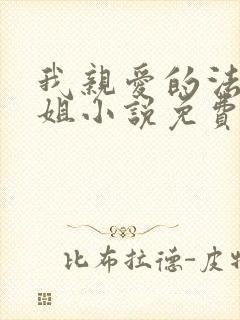 我親愛的法
姐小說免費
比布拉德-皮特